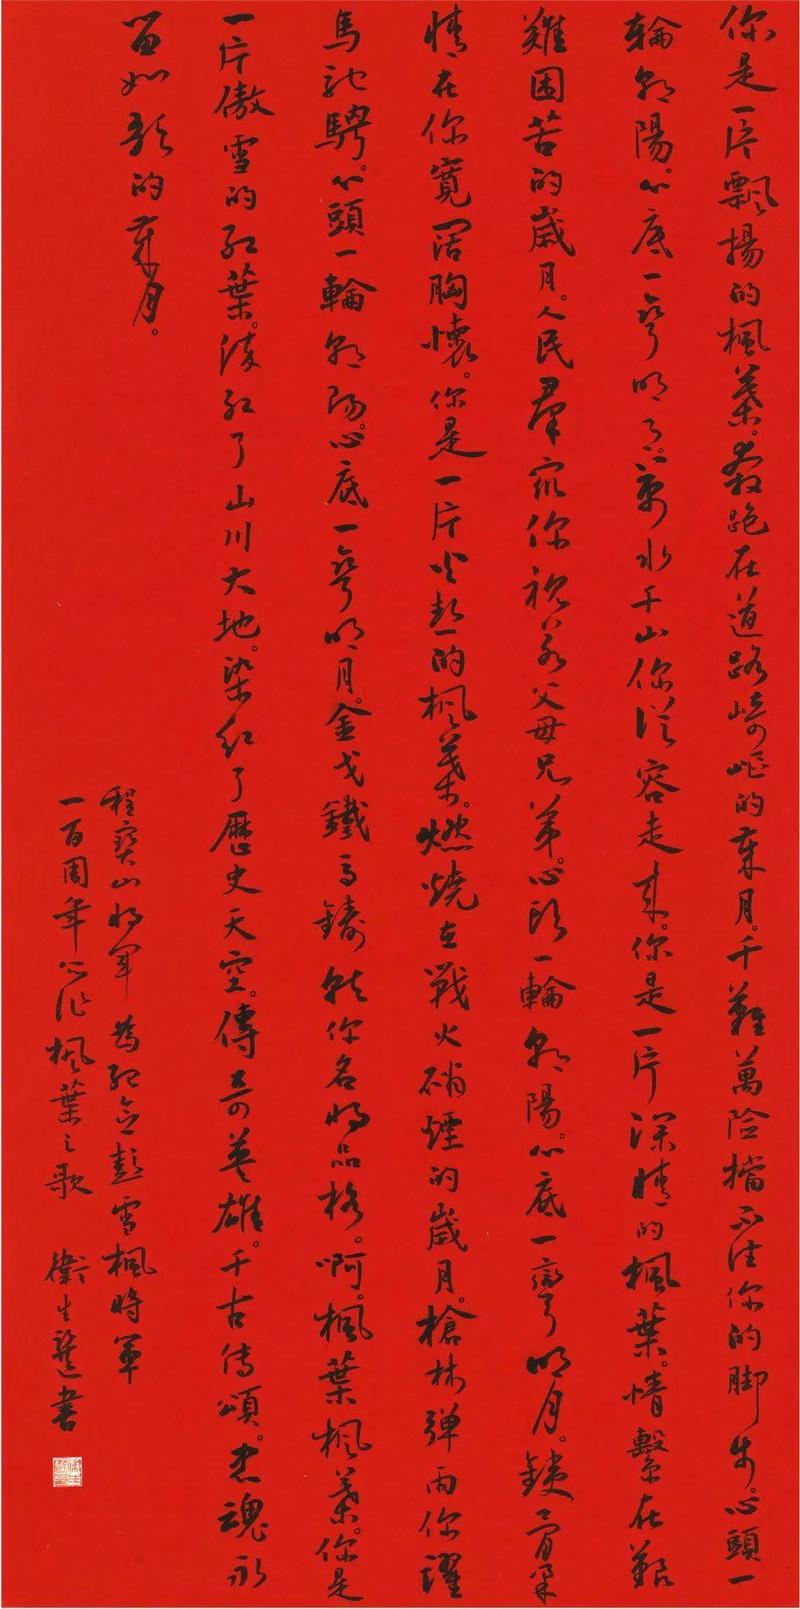 你是一片飄揚的楓葉。奔跑在道路崎嶇的歲月。千難萬險擋不住你的脚步。心頭一
輪朝陽。心底一彎明月。萬水千山你從容走來。你是一片深情的楓葉。情繫在艱
難困苦的歲月。人民群眾你視若父母兄弟。心頭一輪朝陽。心底一彎明月。鐵骨柔
情在你寬闊胸懷。你是一片火熱的楓葉。燃燒在戰火硝煙的歲月。槍林彈雨你躍
馬馳騁。心頭一輪朝陽。心底一彎明月。金戈鐵馬鑄就你名將品格。啊。楓葉楓葉。你是
一片傲雪的紅葉。染紅了山川大地。染紅了歷史天空。傳奇英雄。千古傳頌。忠魂永
留如歌的歲月。
程寶山將軍為紀念彭雪楓將軍
一百周年所作楓葉之歌 衛生 書